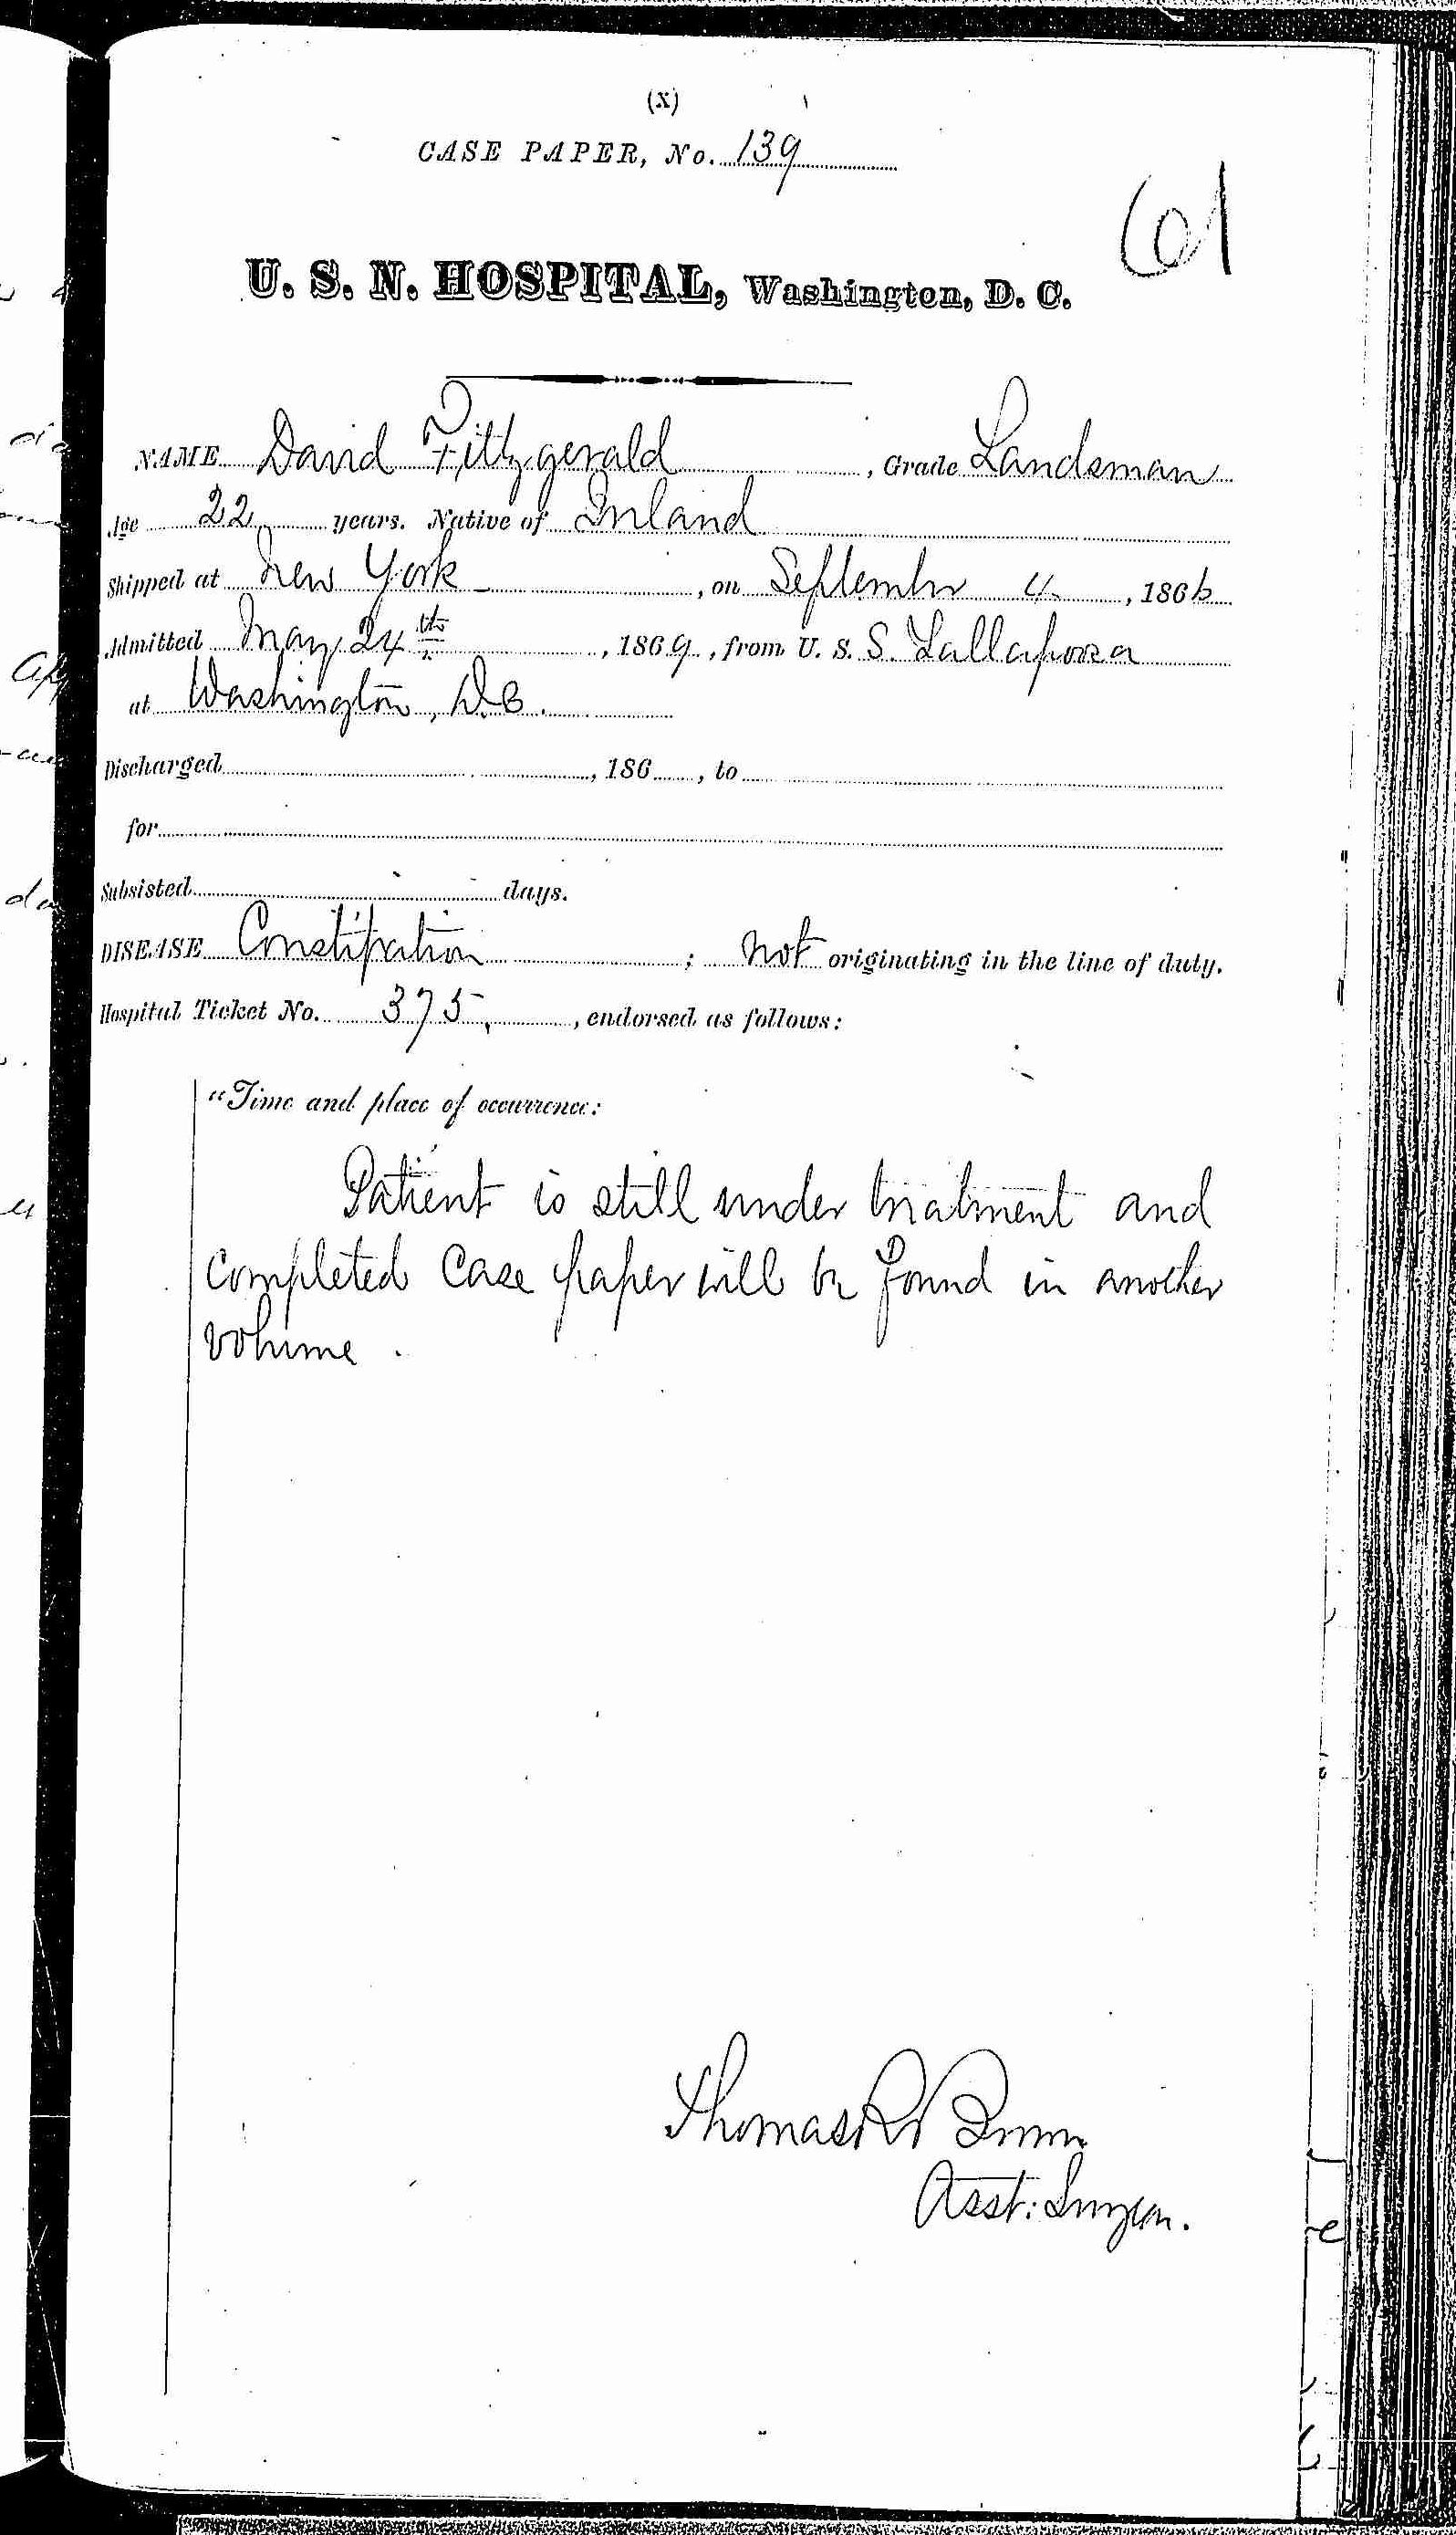 (X)
CASE PAPER, No. 139
61
U. S. N. HOSPITAL, Washington, D. C.
NAME David Fitzgerald, Grade Landsman
Age 22 years. Native of Ireland
Shipped at New York, on September 4, 1866
Admitted May 24th, 1869, from U. S. S. Tallapoosa
at Washington, D.C.
Discharged, 186, to
for
Subsisted days.
DISEASE Constipation; Not originating in the line of duty.
Hospital Ticket No. 375, endorsed as follows:
"Time and place of occurrence:
Patient is still under treatment and
completed Case paper will be found in another
volume.
Thomas R
Asst: Surgeon.